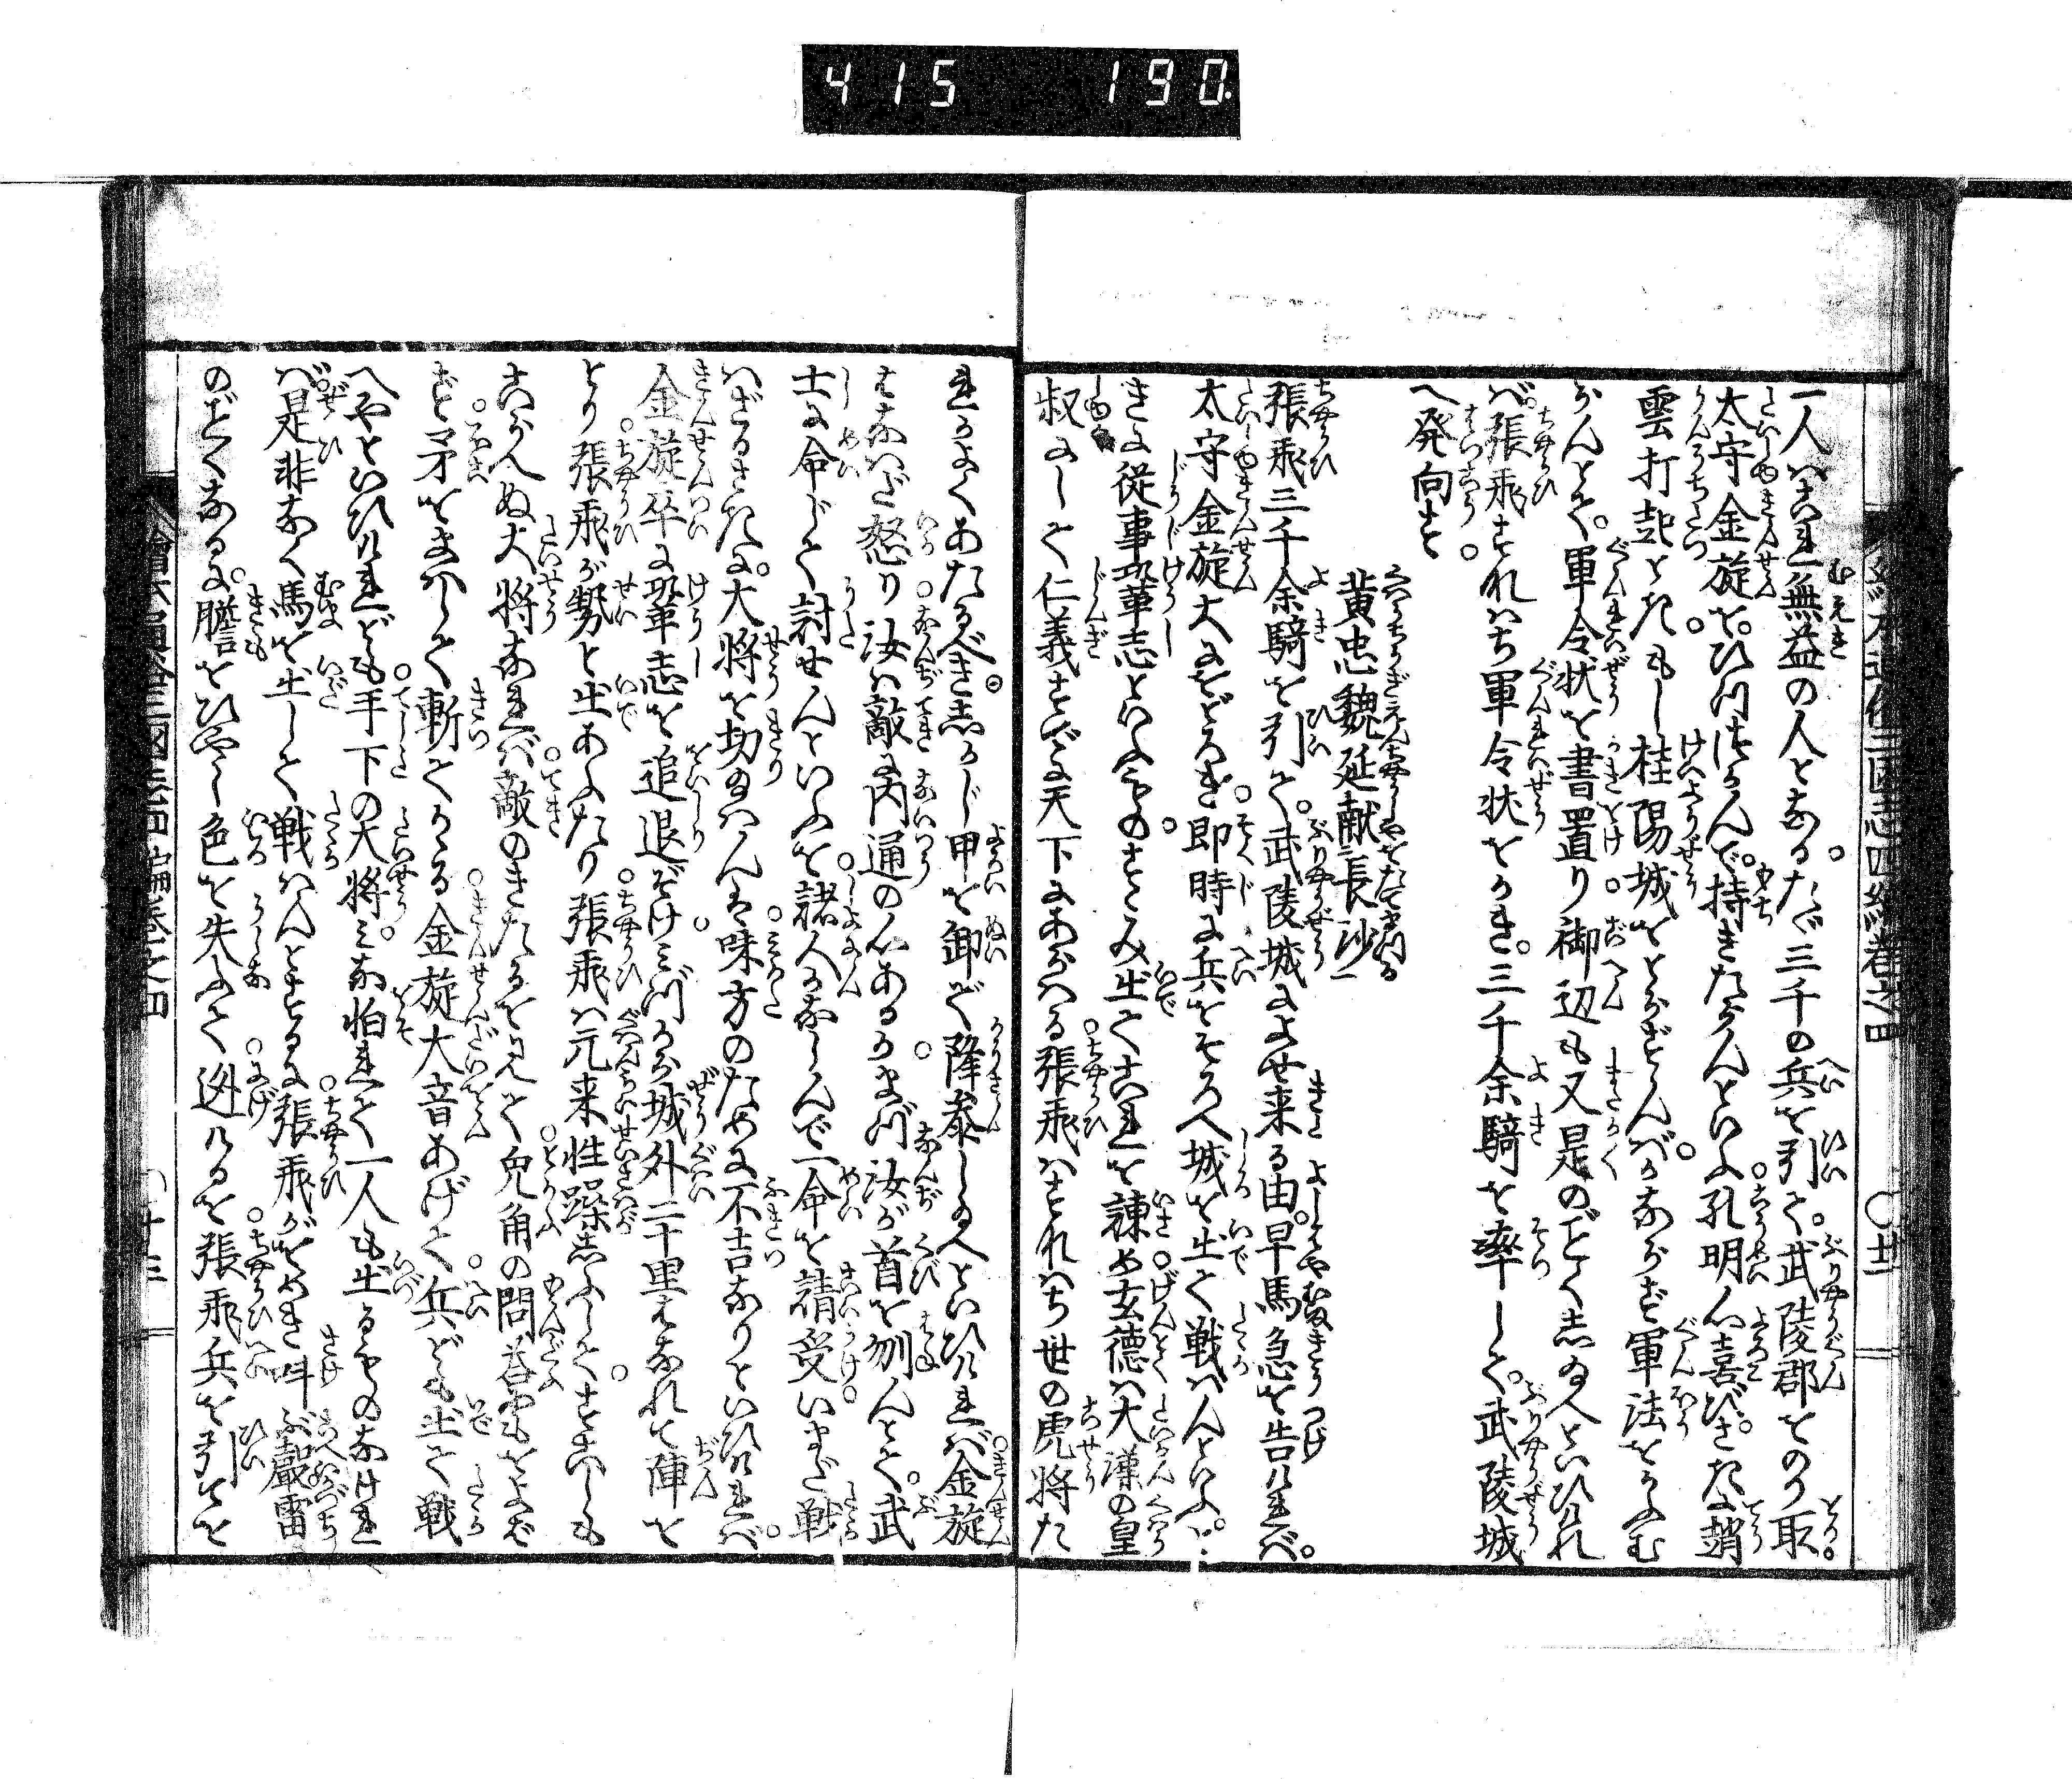 415 190
一人はこれ無益の人となるたゞ三千の兵を引て。武陵郡をのり取。
太守金旋を。ひつ〓かんで。持きたらんといふ孔明心喜び。さきに趙
雲打起ときもし桂陽城をとらざらんば。かならず軍法をかふむ
らんとて。軍令状を書置り御辺も又是のごとくしゐへといひけれ
ば。張飛すなはち軍令状をかき。三千余騎を率して。武陵城
へ発向す。
黄忠魏延献長沙
張飛三千余騎を引て。武陵城によせ来る由。早馬急を告ければ。
太守金旋大きにおどろき。即時に兵をそろへ城を出て戦はんといふ。と
きに従事鞏志といふものすゝみ出てこれを諫め玄徳は大漢の皇
叔にして仁義すでに天下にあらはる張飛はすなはち世の虎将た
れかよくあたるべきしかじ甲を卸で降参しゐへといひければ金旋
はなはだ怒り汝は敵に内通の心あるかまづ汝が首を刎んとて。武
士に命じて討せんといふを。諸人かなしんで一命を請受いまだ戦
はざるさきに。大将を切ゐはんは味方のために不吉なりといひければ。
金旋卒に鞏志を追退ぞけみづから城外二十里はなれて陣を
とり張飛が勢と出あふたり張飛は元来性躁しふして。すこしも
こらへぬ大将なれば敵のきたるを見て兔角の問答にもをよば
ず矛をまはして斬てかゝる金旋大音あげて兵ども出て戦
へやといひけれども手下の大将みな怕れて一人も出るものなけれ
ば。是非なく馬を出して戦はんとするに張飛がをめき叫ぶ声雷
のごとくなるに。膽をひやし色を失ふて逃けるを張飛兵を引てを
繪本通俗三國志四編巻之四
〇廿二
繪本通俗三國志四編巻之四
〇廿三